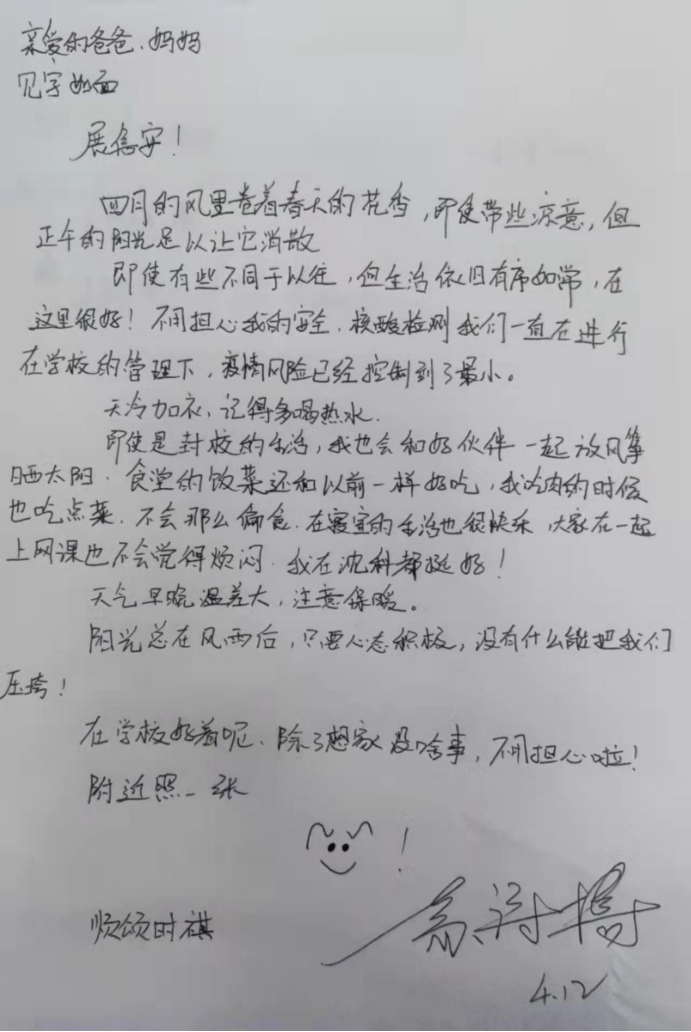 亲爱的爸爸、妈妈
见字如面
展信安！
四月的风里卷着春天的花香，即使带些凉意，但
正午的阳光足以让它消散
即使有些不同于以往，但生活依旧有序如常，在
这里很好！不用担心我的安全，核酸检测我们一直在进行
在学校的管理下，疫情风险已经控制到了最小。
天冷加衣，记得多喝热水.
即使是封校的生活，我也会和好伙伴一起放风筝
晒太阳. 食堂的饭菜还和以前一样好吃，我吃肉的时候
也吃点菜. 不会那么偏食. 在寝室的生活也很快乐，大家在一起
上网课也不会觉得烦闷. 我在沈科都挺好！
天气早晚温差大，注意保暖。
阳光总在风雨后，只要心态积极，没有什么能把我们
压垮！
在学校好着呢、除了想家没啥事，不用担心啦！
附近照一张
！
顺颂时祺
4.12